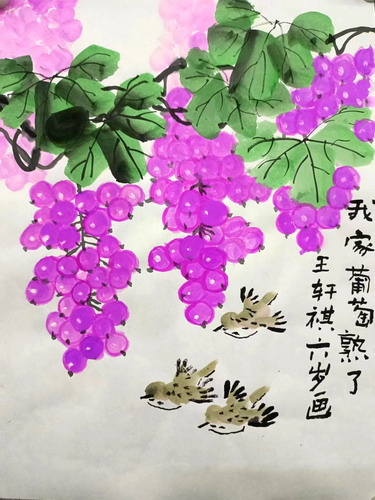 我家葡萄熟了
王轩祺六岁画